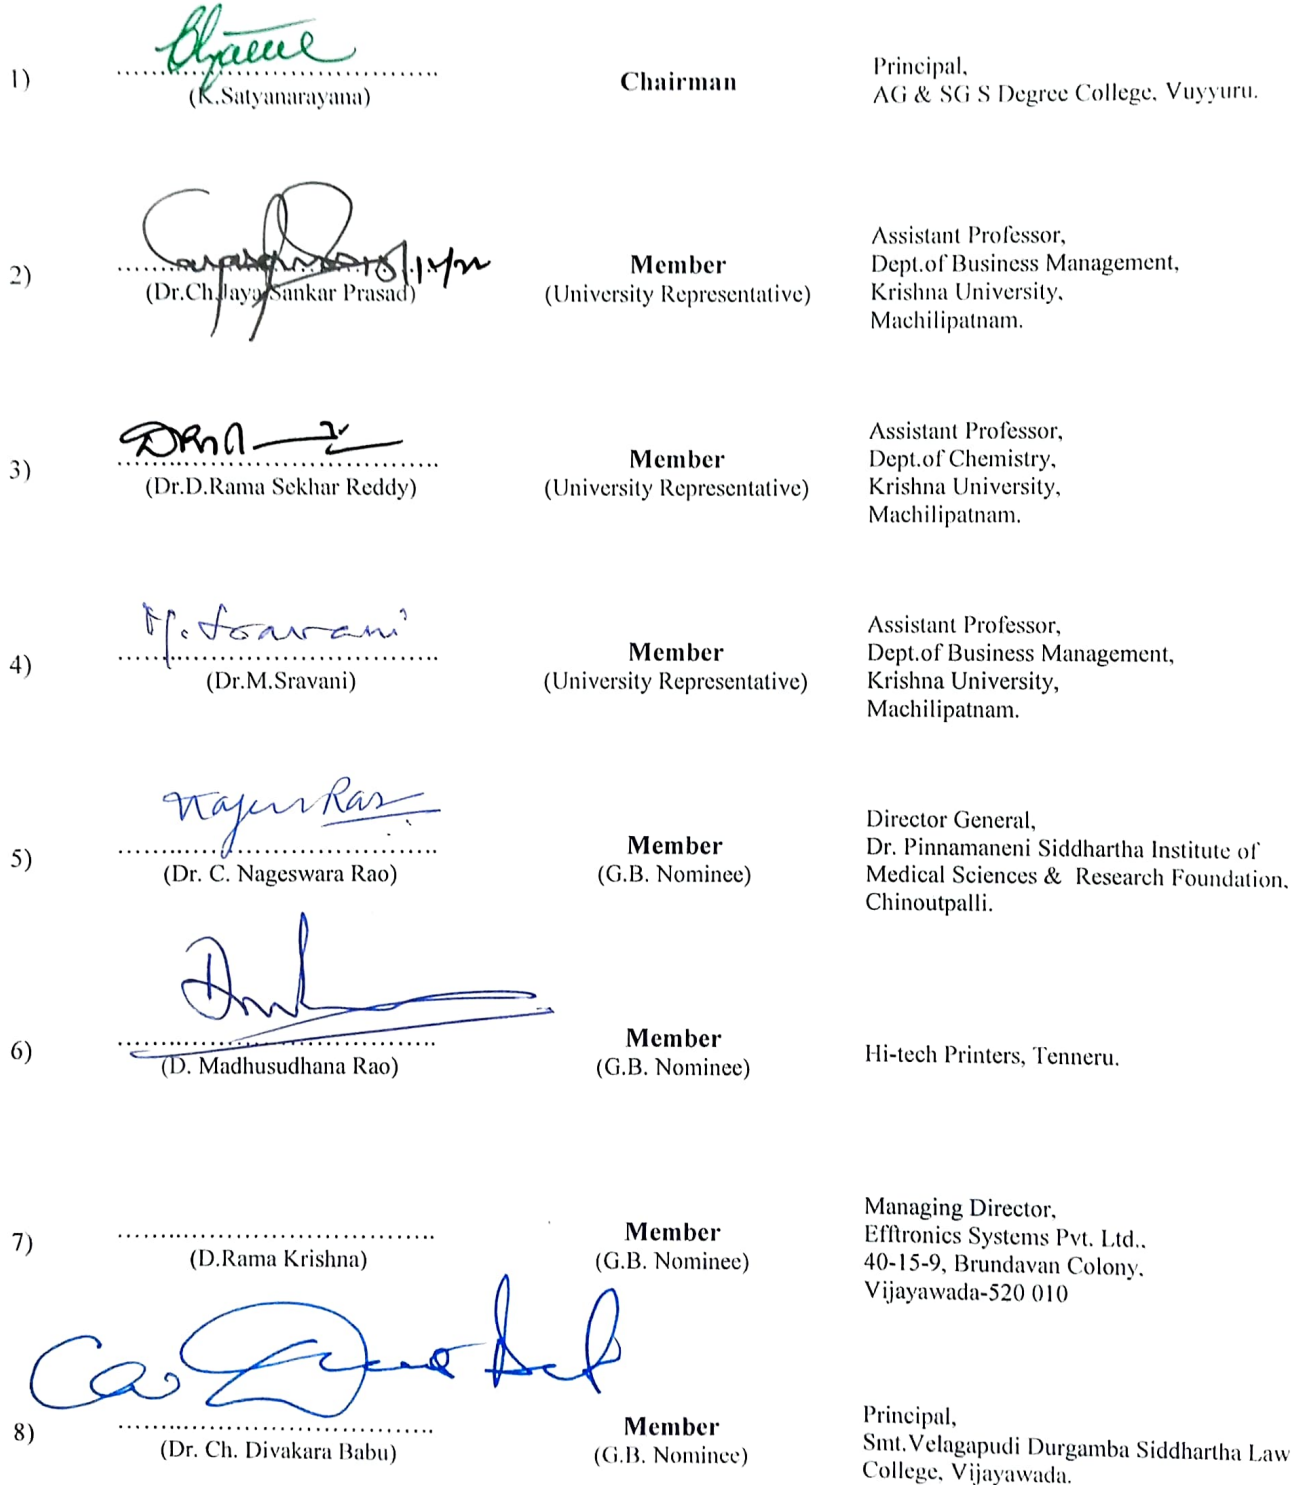 1)
(K.Satyanarayana)
Chairman
Principal,
AG & SG S Degree College, Vuyyuru.
2)
(Dr.Ch.Jaya Sankar Prasad)
Member
(University Representative)
Assistant Professor,
Dept.of Business Management,
Krishna University,
Machilipatnam.
3)
(Dr.D.Rama Sekhar Reddy)
Member
(University Representative)
Assistant Professor,
Dept.of Chemistry,
Krishna University,
Machilipatnam.
4)
M. Sravani
(Dr.M.Sravani)
Member
(University Representative)
Assistant Professor,
Dept.of Business Management,
Krishna University,
Machilipatnam.
5)
(Dr. C. Nageswara Rao)
Member
(G.B. Nominee)
Director General,
Dr. Pinnamaneni Siddhartha Institute of
Medical Sciences & Research Foundation,
Chinoutpalli.
6)
(D. Madhusudhana Rao)
Member
(G.B. Nominee)
Hi-tech Printers, Tenneru.
7)
(D.Rama Krishna)
Member
(G.B. Nominee)
Managing Director,
Efftronics Systems Pvt. Ltd.,
40-15-9, Brundavan Colony,
Vijayawada-520 010
8)
(Dr. Ch. Divakara Babu)
Member
(G.B. Nominee)
Principal,
Smt.Velagapudi Durgamba Siddhartha Law
College, Vijayawada.